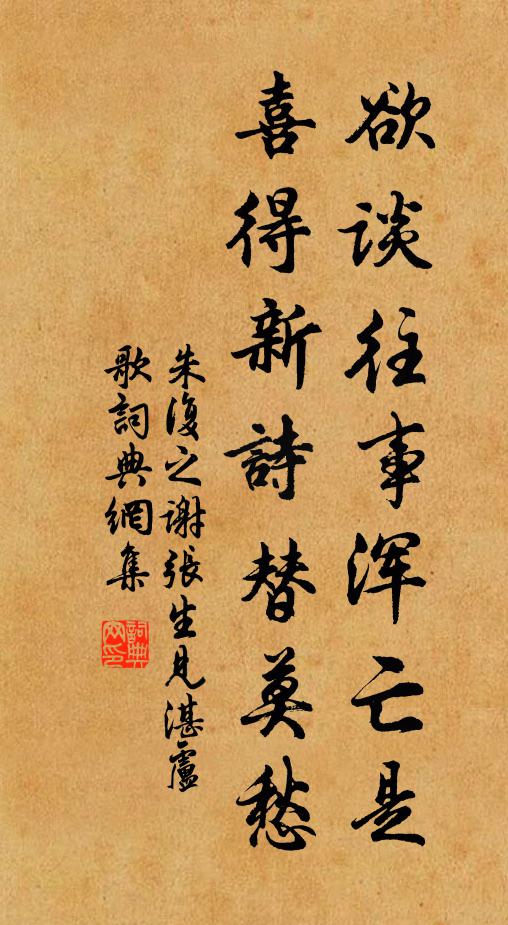 欲谈往事浑亡是
喜得新詩替莫愁
朱復之谢張生見湛盧
歌詞典網集
詞典
网印